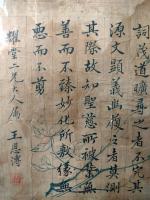 詞茂道曠尋之者不究其
源文顯義幽履之者莫測
其際故知聖慈所被業無
善而不臻妙化所敷緣無
惡而不剪
耀堂一兄大人屬
王恩溥